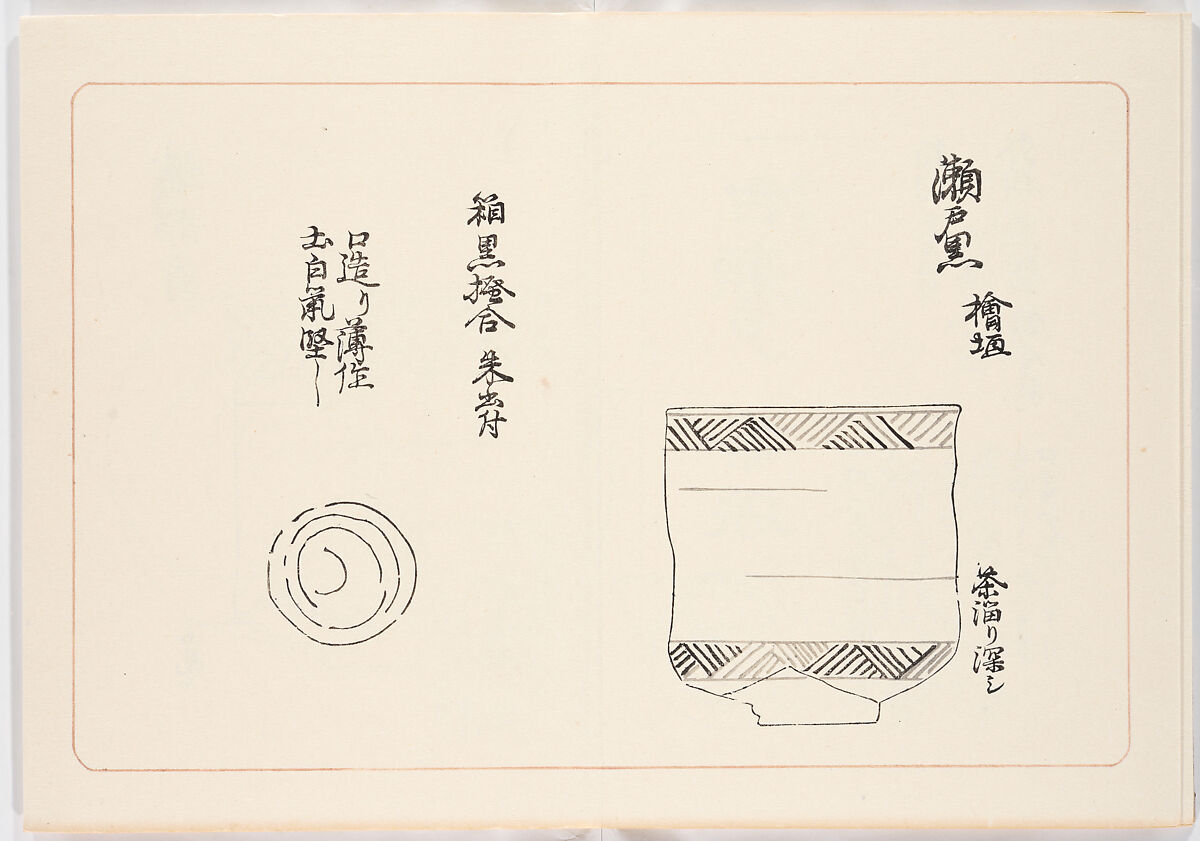 瀬戸黒
檜垣
茶溜り深シ
箱黒掻合 朱書付
口造り薄作
土白気堅シ